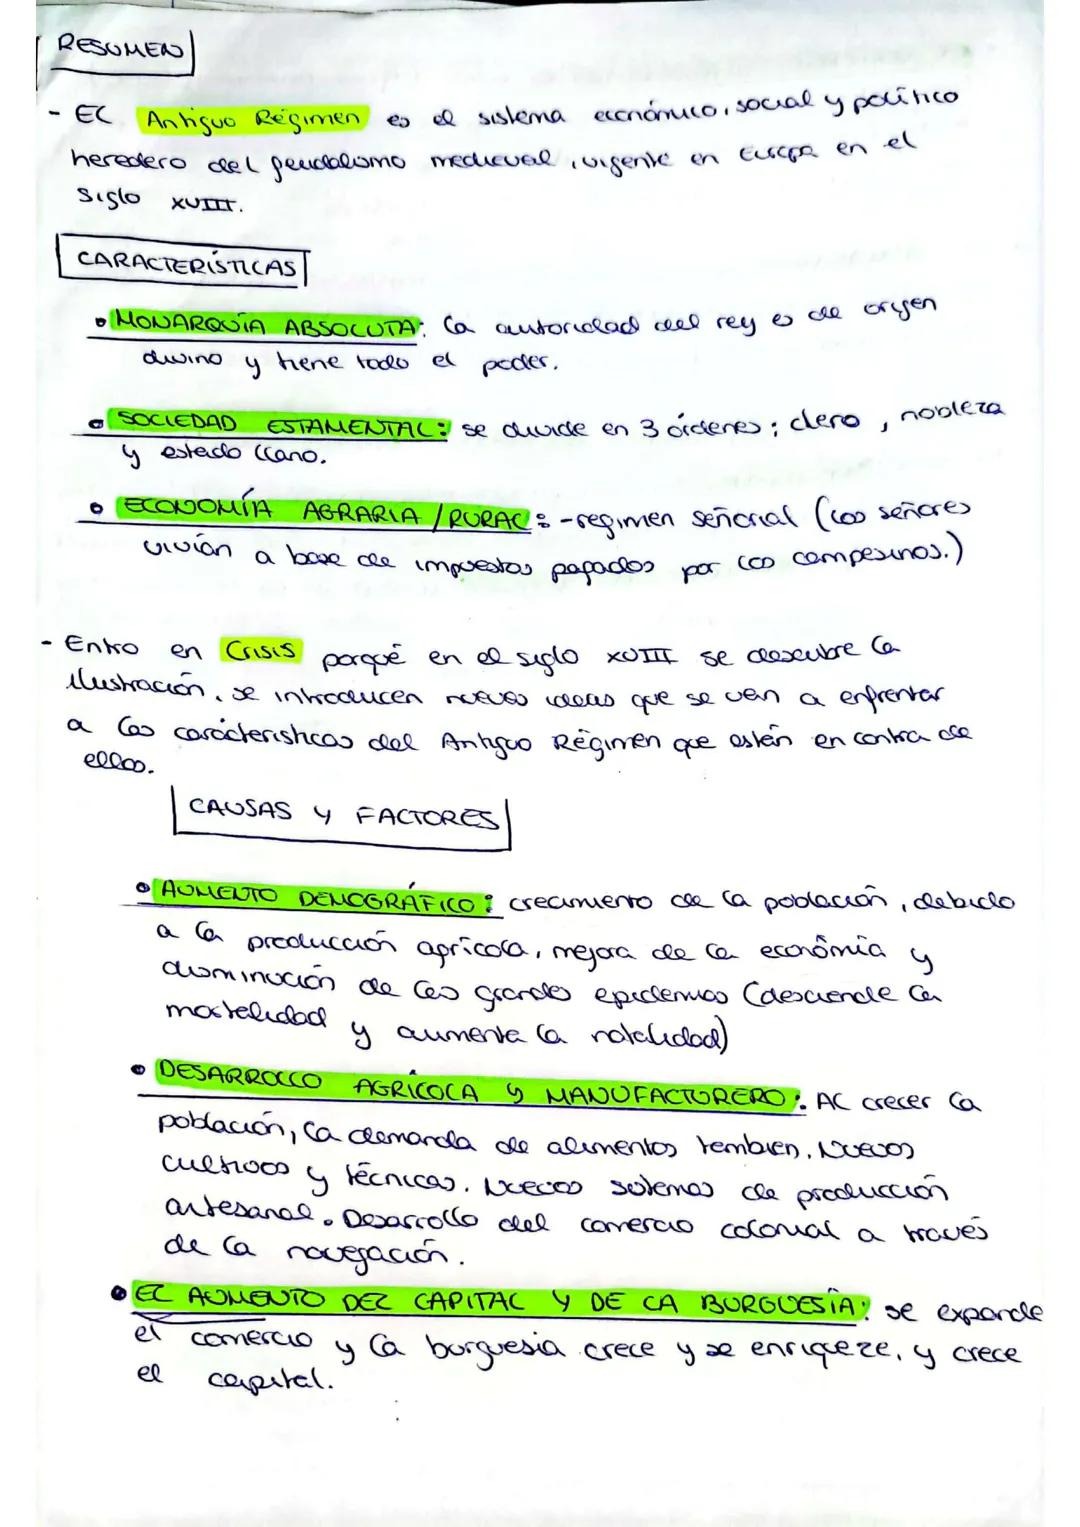 RESUMEN
- El Antiguo Régimen es el sistema económico, social y político
heredero del feudalismo medieval, vigente en Europa en el
siglo XVIII.
CARACTERÍSTICAS
• MONARQUÍA ABSOLUTA: la autoridad del rey es de origen
divino y tiene todo el poder.
• SOCIEDAD ESTAMENTAL: se divide en 3 órdenes; clero, nobleza
y estado llano.
• ECONOMÍA AGRARIA / RURAL: - regimen señorial (los señores
vivían a base de impuestos pagados por los campesinos.)
- Entro en Crisis porqué en el siglo XVIII se descubre la
ilustración, se introducen nuevas ideas que se van a enfrentar
a las carácteristicas del Antiguo Régimen que están en contra de
ellas.
CAUSAS Y FACTORES
• AUMENTO DEMOGRÁFICO: crecimiento de la población, debido
a la producción agrícola, mejora de la económia y
disminución de las grandes epidemias (desciende la
mortalidad y aumenta la natalidad)
• DESARROLLO AGRÍCOLA Y MANUFACTURERO: Al crecer la
población, la demanda de alimentos tambien. Nuevos
cultivos y técnicas. Nuevos sistemas de producción
artesanal. Desarrollo del comercio colonial a través
de la navegación.
• EL AUMENTO DEL CAPITAL Y DE LA BURGUESÍA: se expande
el comercio y la burguesia crece y se enriqueze, y crece
el capital.